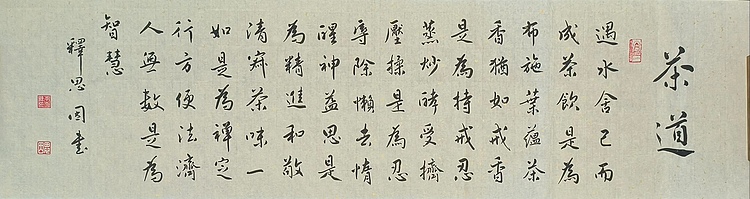 茶道
遇水舍己而
成茶飲是為
布施葉蘊茶
香猶如戒香
是為持戒忍
蒸炒酵受擠
壓揉是為忍
辱除懶去惰
醒神益思是
為精進和敬
清寂茶味一
如是為禪定
行方便法濟
人無數是為
智慧
釋思書